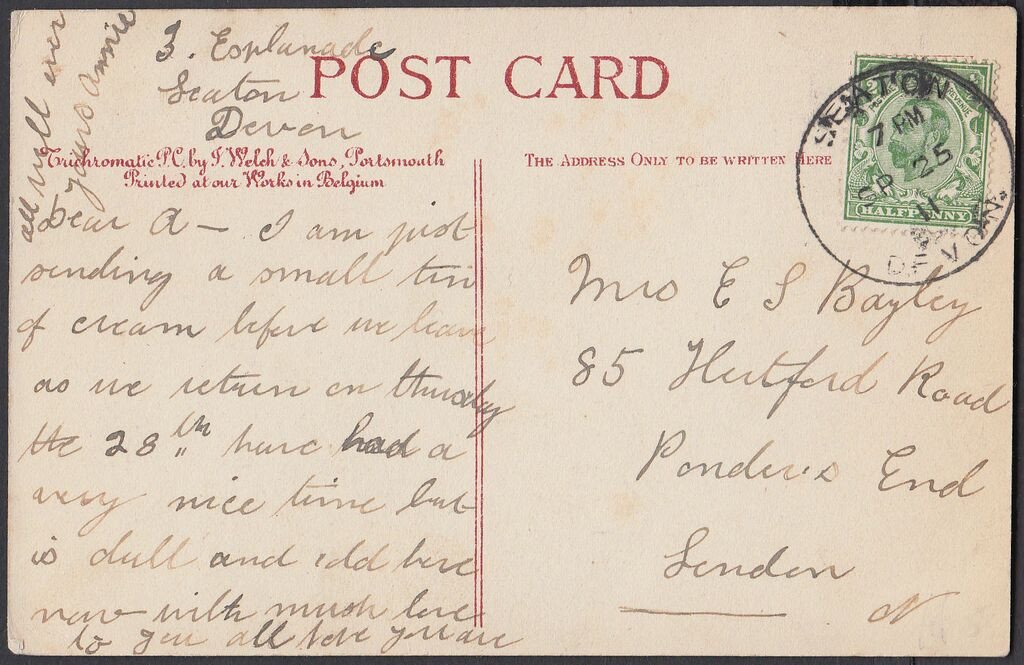 3. Esplanade
Seaton
Devon
POST CARD
Trichromatic P.C. by J. Welch & Sons, Portsmouth
Printed at our Works in Belgium
THE ADDRESS ONLY TO BE WRITTEN HERE
Dear A — I am just
sending a small tin
of cream before we leave
as we return on thursday
the 28th have had a
very nice time but
is dull and cold here
now with much love
to you all hope you are
all well ever
yours Annie
SEATON
7 PM
SP 25
11
DEVON
HALFPENNY
Mrs E S Bayley
85 Hertford Road
Ponder's End
London
N